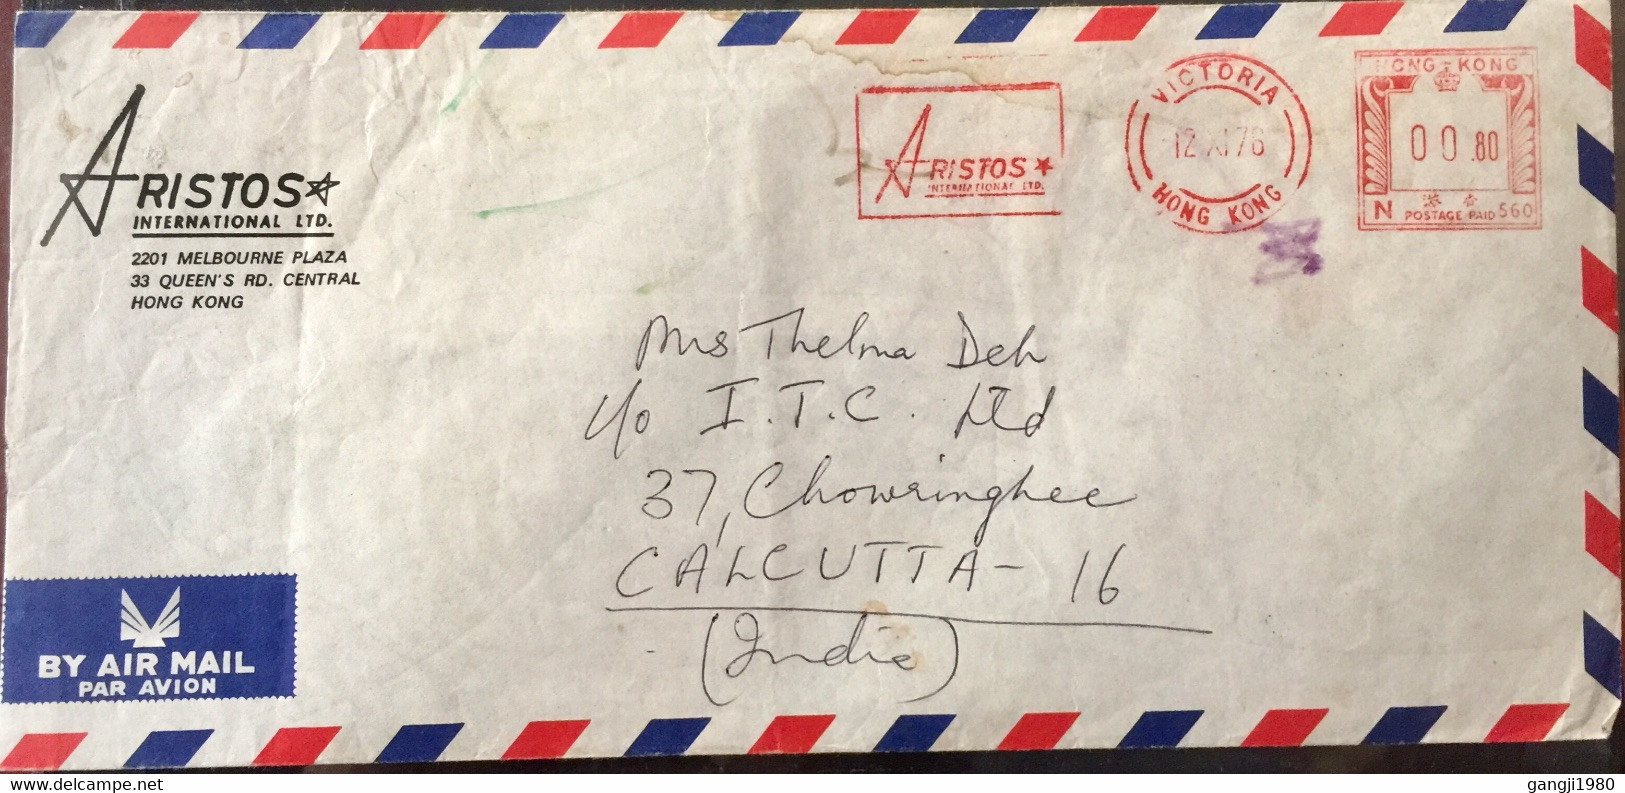 ARISTOS
INTERNATIONAL LTD.
2201 MELBOURNE PLAZA
33 QUEEN'S RD. CENTRAL
HONG KONG
ARISTOS
INTERNATIONAL LTD.
VICTORIA
12 XI 76
HONG KONG
HONG-KONG
00.80
香港
N POSTAGE PAID 560
Mrs Thelma Deh
c/o I.T.C. Ltd
37, Chowringhee
CALCUTTA - 16
(India)
BY AIR MAIL
PAR AVION
www.delcampe.net
gangji1980